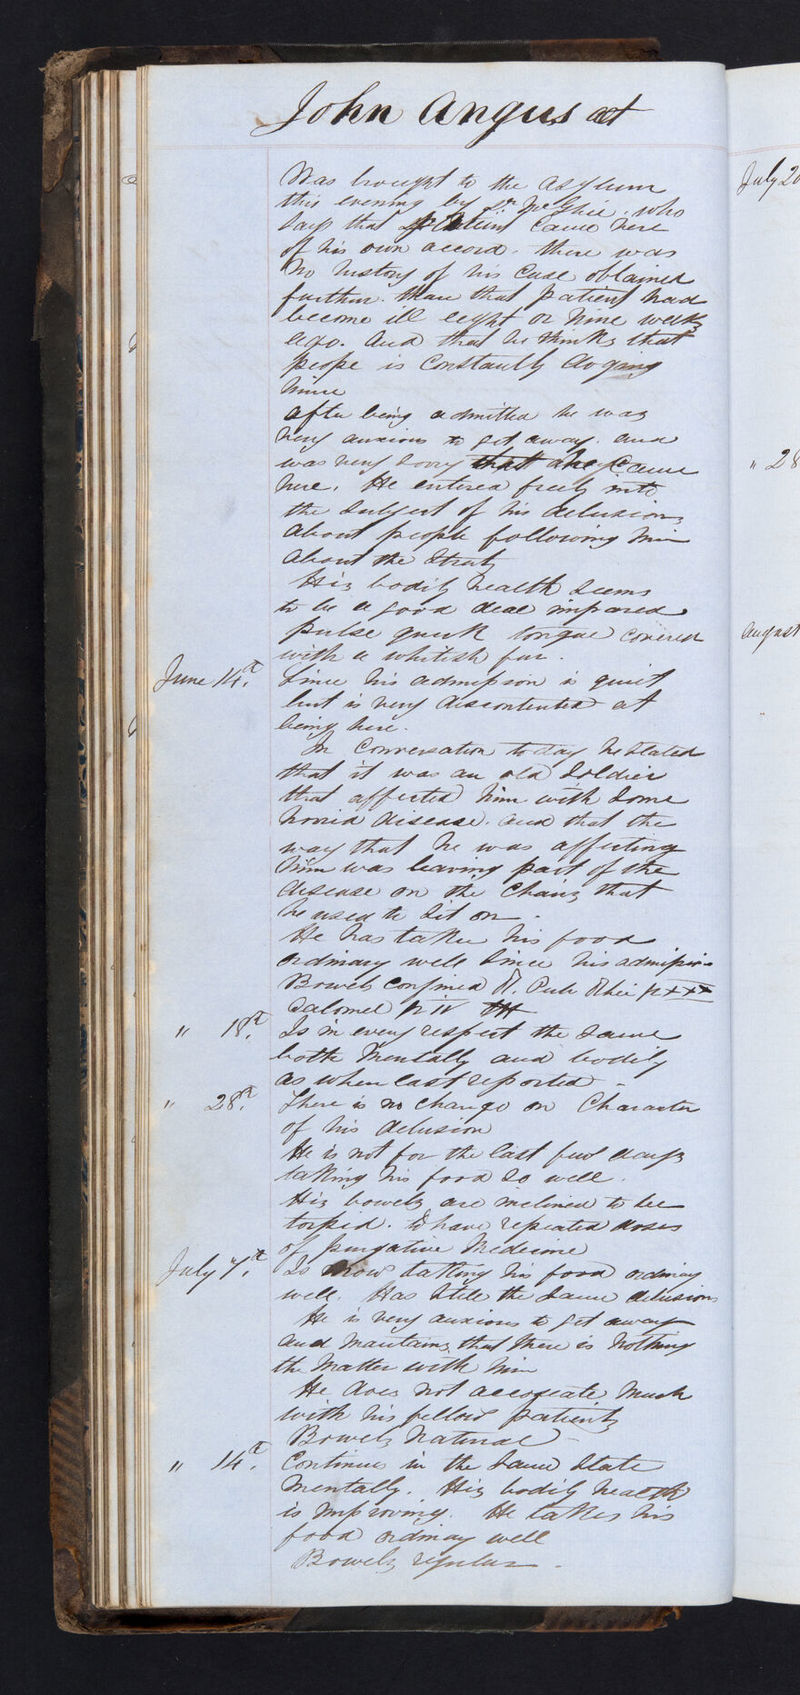 John Angus æt
Was brought to the asylum
this evening by Dr McGhie. who
says that patient came here
of his own accord. there was
no history of his case obtained
further than that patient had
become ill eight or nine weeks
ago. And that he thinks that
peope is constantly doging
him
after being admitted he was
very anxious to get away. and
was very sorry that he came
here. He entered freely into
the subject of his delusions
about people following him
about the streets
His bodily health seems
to be a good deal impared
pulse quick tongue covered
with a whitish fur.
June 14th. Since his admission is quiet
but is very discontented at
being here.
In conversation to day he stated
that it was an old soldier
that affected him with some
horrid disease. and that the
way that he was affecting
him was leaving part of the
disease on the chairs that
he used to sit on.
He has taken his food
ordinary well since his admission
Bowels confined R. Pulv Rhei gr xxx
Calomel gr iv
" 18th. Is in every respect the same
both mentally and bodily
as when last reported -
" 28th. There is no change on character
of his delusion
He is not for the last few days
taking his food so well.
His bowels are inclined to be
torpid. to have repeated doses
of purgative Medicine
July 7th. Is now taking his food ordinary
well. Has still the same delusions
He is very anxious to get away
and maintains that there is nothing
the matter with him
He does not accociate much
with his fellow patients
Bowels natural -
" 14th. Continues in the same state
mentally. His bodily health
is improving. He takes his
food ordinay well
Bowels regular -
July 2
" 28
August